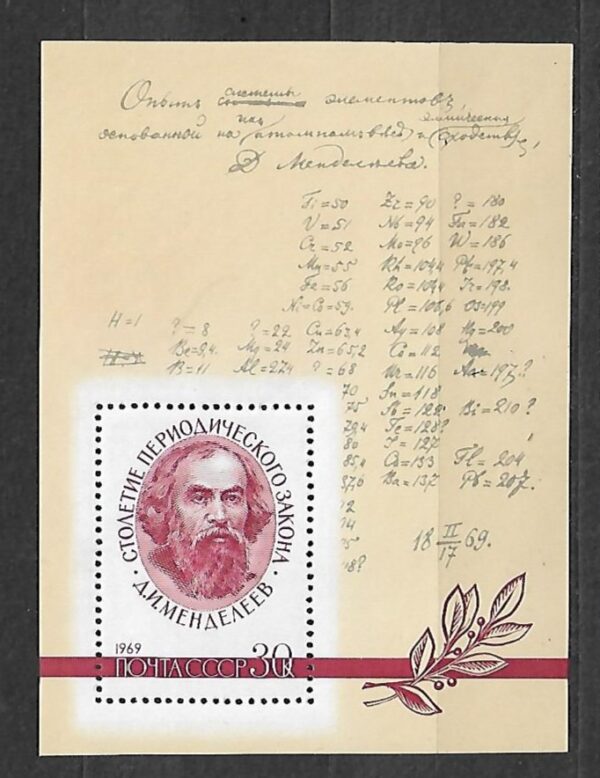 Опытъ системы элементовъ,
основанной на ихъ атомномъ вѣсѣ и химическомъ сходствѣ,
Д. Менделѣева.
Ti=50 Zr=90 ?=180
V=51 Nb=94 Ta=182
Cr=52 Mo=96 W=186
Mn=55 Rh=104,4 Pt=197,4
Fe=56 Ro=104,4 Ir=198.
Ni=Co=59. Pl=106,6 Os=199
H=1 ?=8 ?=22 Cu=63,4 Ag=108 Hg=200
Be=9,4. Mg=24 Zn=65,2 Cd=112
B=11 Al=27,4 ?=68 Ur=116 Au=197?
70 Sn=118
75 Sb=122 Bi=210?
79,4 Te=128?
80 I=127
85,4 Cs=133 Tl=204
87,6 Ba=137 Pb=207.
92
94
18 II/17 69.
95
118?
СТОЛЕТИЕ ПЕРИОДИЧЕСКОГО ЗАКОНА
· Д.И.МЕНДЕЛЕЕВ ·
1969
ПОЧТА СССР 30К